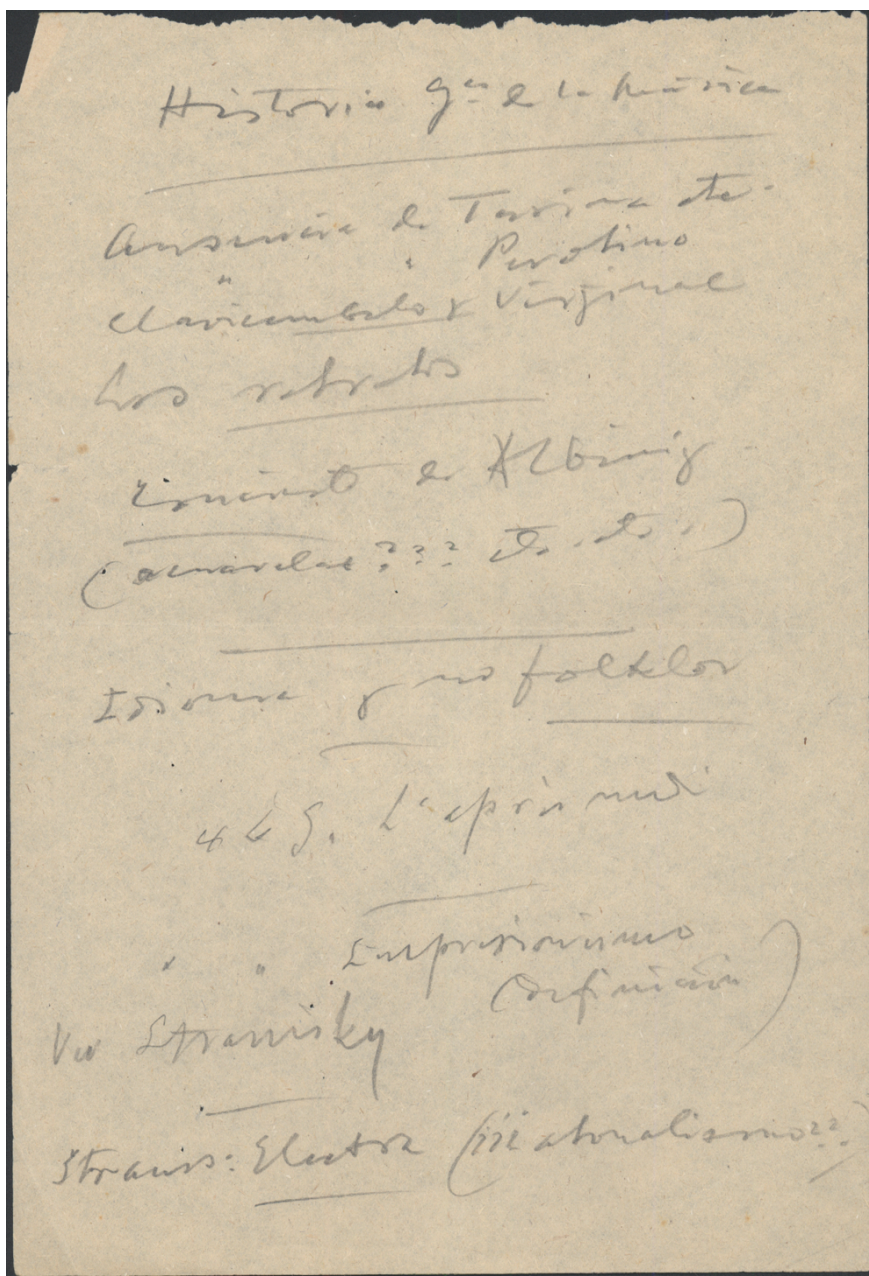 Historia gal de la Música
Ausencia de Tarina etc.
" " Perotino
Clavicembalo y Virginal
Los retratos
de Albéniz
(acuarelas??? etc. etc.)
Idioma y no folklor
L'après midi
" " Impresionismo
(definición)
Ver Strawisky
Strauss: Electra (¡¡¡atonalismo??.